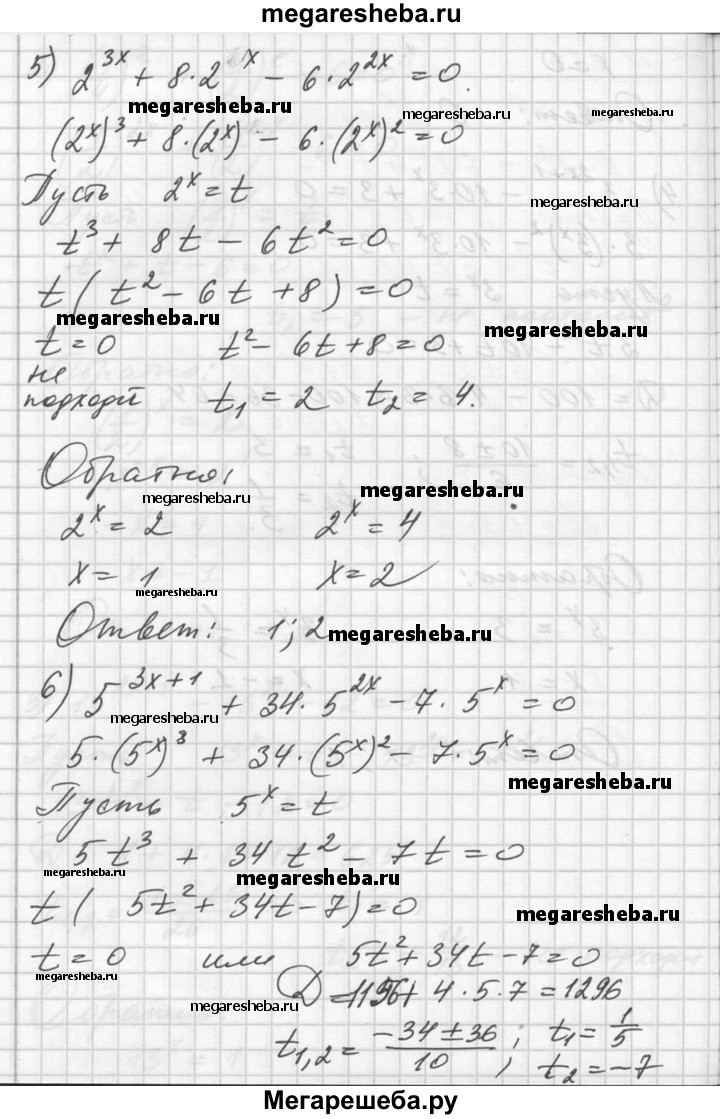 megaresheba.ru
5) 2^{3x} + 8·2^{x} − 6·2^{2x} = 0.
megaresheba.ru megaresheba.ru megaresheba.ru
(2^x)^3 + 8·(2^x) − 6·(2^x)^2 = 0
Пусть 2^x = t
megaresheba.ru megaresheba.ru
t^3 + 8t − 6t^2 = 0
t(t^2 − 6t + 8) = 0
megaresheba.ru megaresheba.ru
t = 0 t^2 − 6t + 8 = 0
не
подходй t_1 = 2 t_2 = 4.
Обратно:
megaresheba.ru megaresheba.ru
2^x = 2 2^x = 4
x = 1 x = 2
megaresheba.ru megaresheba.ru
Ответ: 1; 2
megaresheba.ru
6) 5^{3x+1} + 34·5^{2x} − 7·5^x = 0
megaresheba.ru
5·(5^x)^3 + 34·(5^x)^2 − 7·5^x = 0
megaresheba.ru
Пусть 5^x = t
5t^3 + 34t^2 − 7t = 0
megaresheba.ru megaresheba.ru
t(5t^2 + 34t − 7) = 0
megaresheba.ru
t = 0 или 5t^2 + 34t − 7 = 0
megaresheba.ru
D = 1156 + 4·5·7 = 1296
megaresheba.ru
t_{1,2} = \frac{−34 ± 36}{10}; t_1 = \frac{1}{5}, t_2 = −7
Мегарешеба.ру